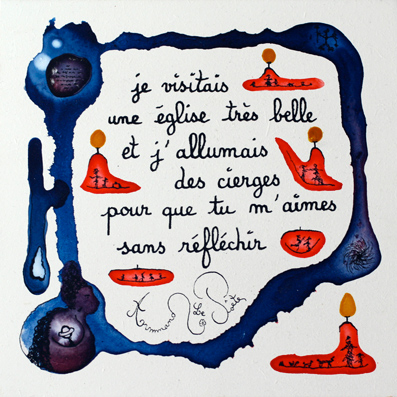 je visitais
une église très belle
et j'allumais
des cierges
pour que tu m'aimes
sans réfléchir
Armand Le Poète